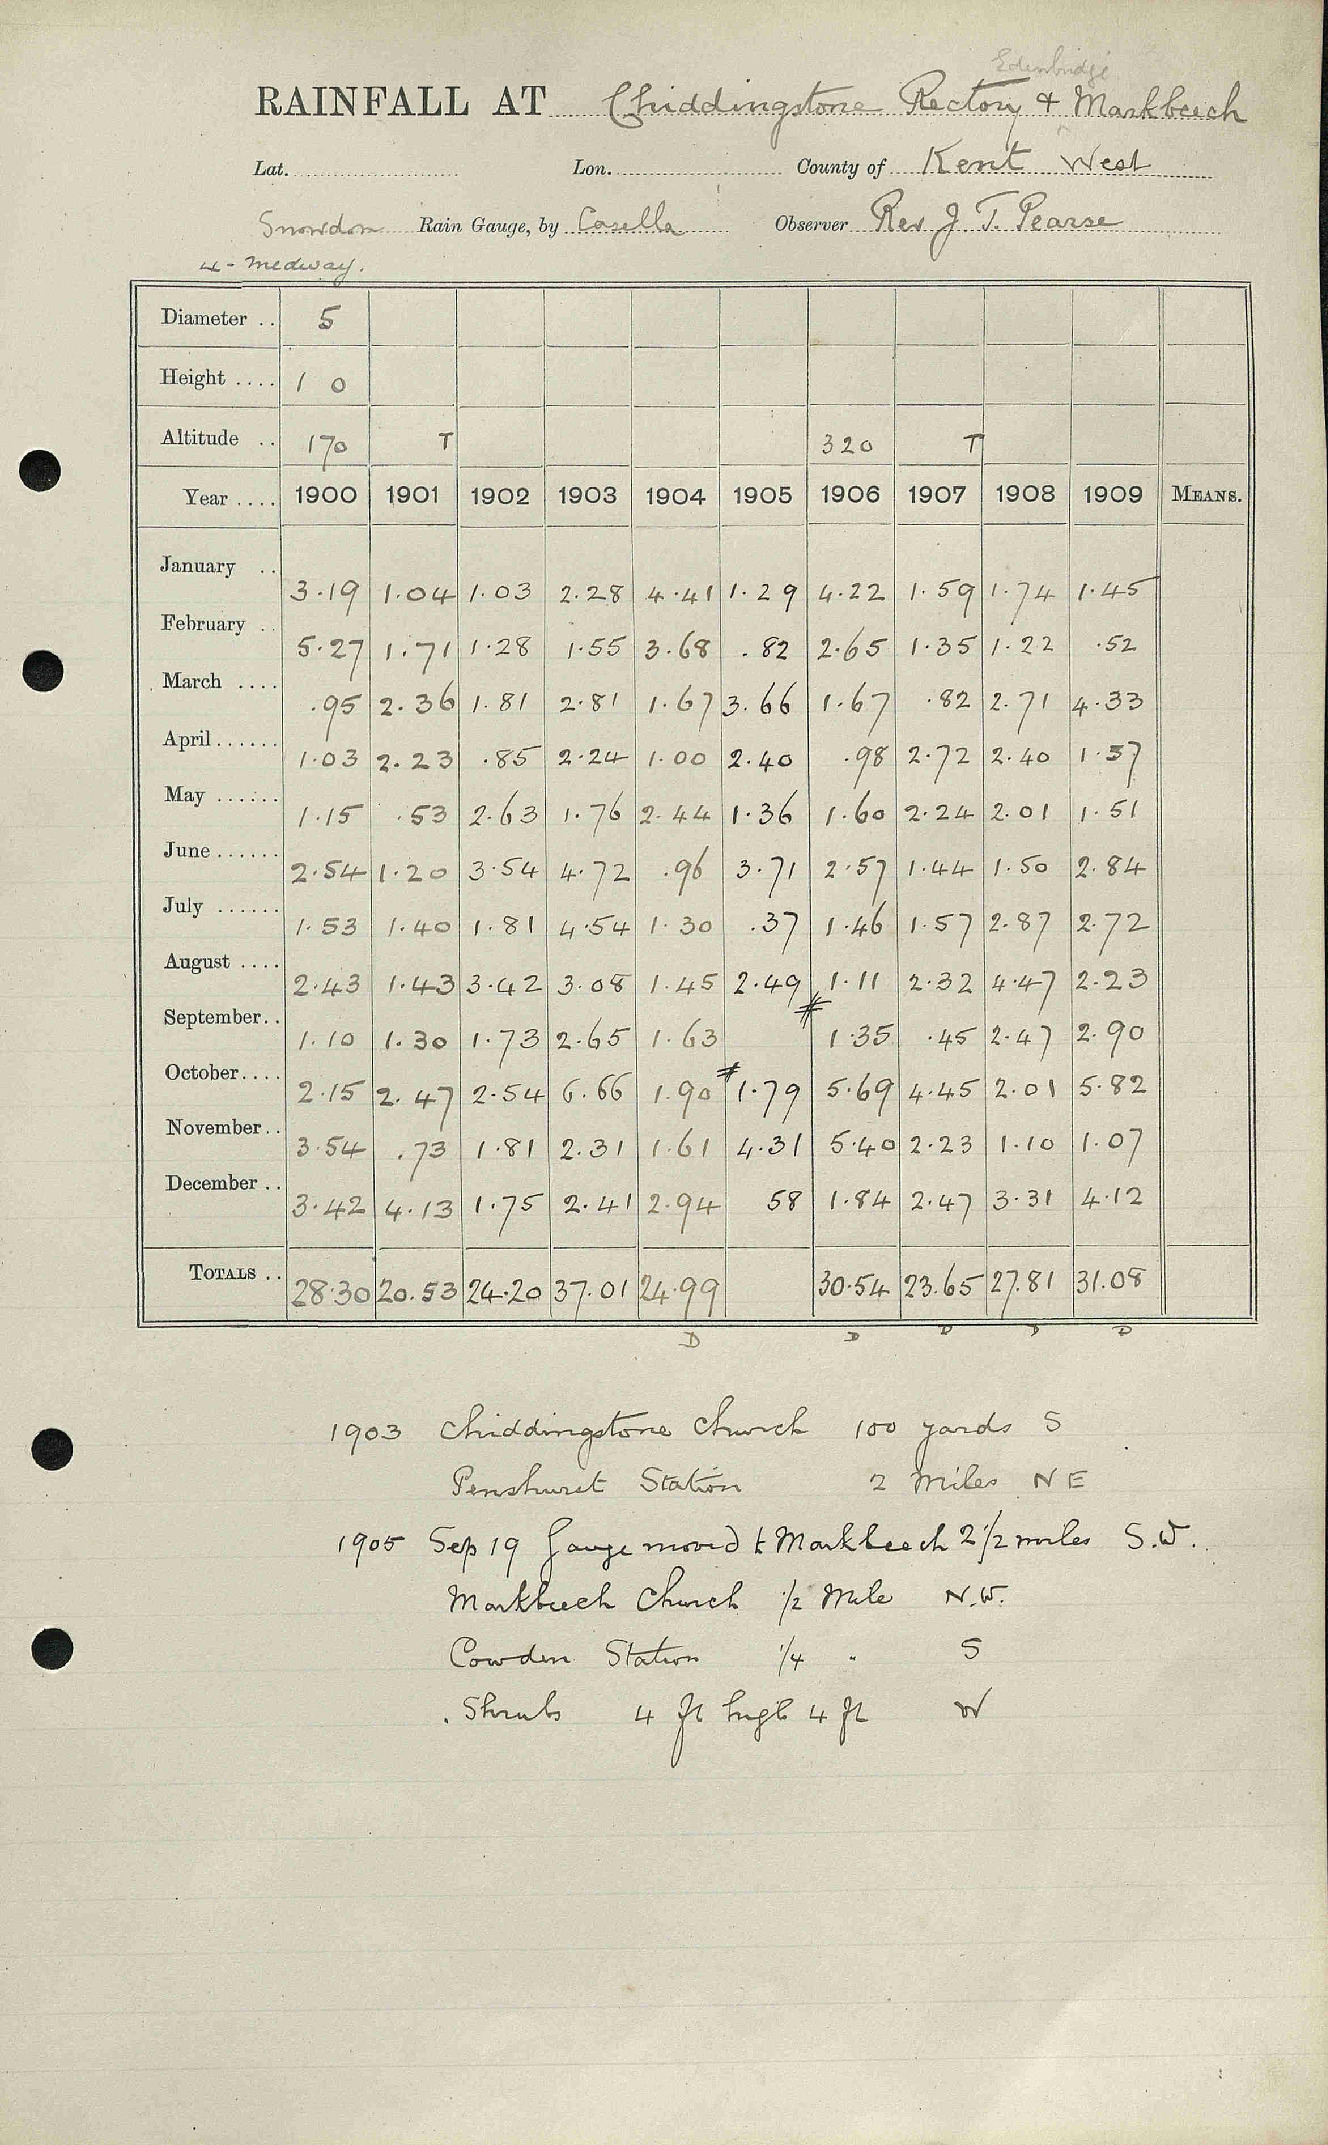 Edenbridge
RAINFALL AT Chiddingstone Rectory & Markbeech
Lat. Lon. County of Kent West
Snowdon Rain Gauge, by Casella Observer Rev J. T. Pearse
4 - Medway.
Diameter .. 5
Height .... 1 0
Altitude .. 170 T 320 T
Year .... 1900 1901 1902 1903 1904 1905 1906 1907 1908 1909 MEANS.
January .. 3.19 1.04 1.03 2.28 4.41 1.29 4.22 1.59 1.74 1.45
February .. 5.27 1.71 1.28 1.55 3.68 .82 2.65 1.35 1.22 .52
March .... .95 2.36 1.81 2.81 1.67 3.66 1.67 .82 2.71 4.33
April ...... 1.03 2.23 .85 2.24 1.00 2.40 .98 2.72 2.40 1.57
May ...... 1.15 .53 2.63 1.76 2.44 1.36 1.60 2.24 2.01 1.51
June ...... 2.54 1.20 3.54 4.72 .96 3.71 2.57 1.44 1.50 2.84
July ...... 1.53 1.40 1.81 4.54 1.30 .37 1.46 1.57 2.87 2.72
August .... 2.43 1.43 3.42 3.08 1.45 2.49 1.11 2.32 4.47 2.23
September.. 1.10 1.30 1.73 2.65 1.63 # 1.35 .45 2.47 2.90
October.... 2.15 2.47 2.54 6.66 1.90 # 1.79 5.69 4.45 2.01 5.82
November.. 3.54 .73 1.81 2.31 1.61 4.31 5.40 2.23 1.10 1.07
December .. 3.42 4.13 1.75 2.41 2.94 58 1.84 2.47 3.31 4.12
TOTALS .. 28.30 20.53 24.20 37.01 24.99 30.54 23.65 27.81 31.08
D D D D D
1903 Chiddingstone Church 100 yards S
Penshurst Station 2 Miles NE
1905 Sep 19 Gauge moved to Markbeech 2 1/2 miles S.W.
Markbeech Church 1/2 Mile N.W.
Cowden Station 1/4 " S
Shrubs 4 ft high 4 ft W